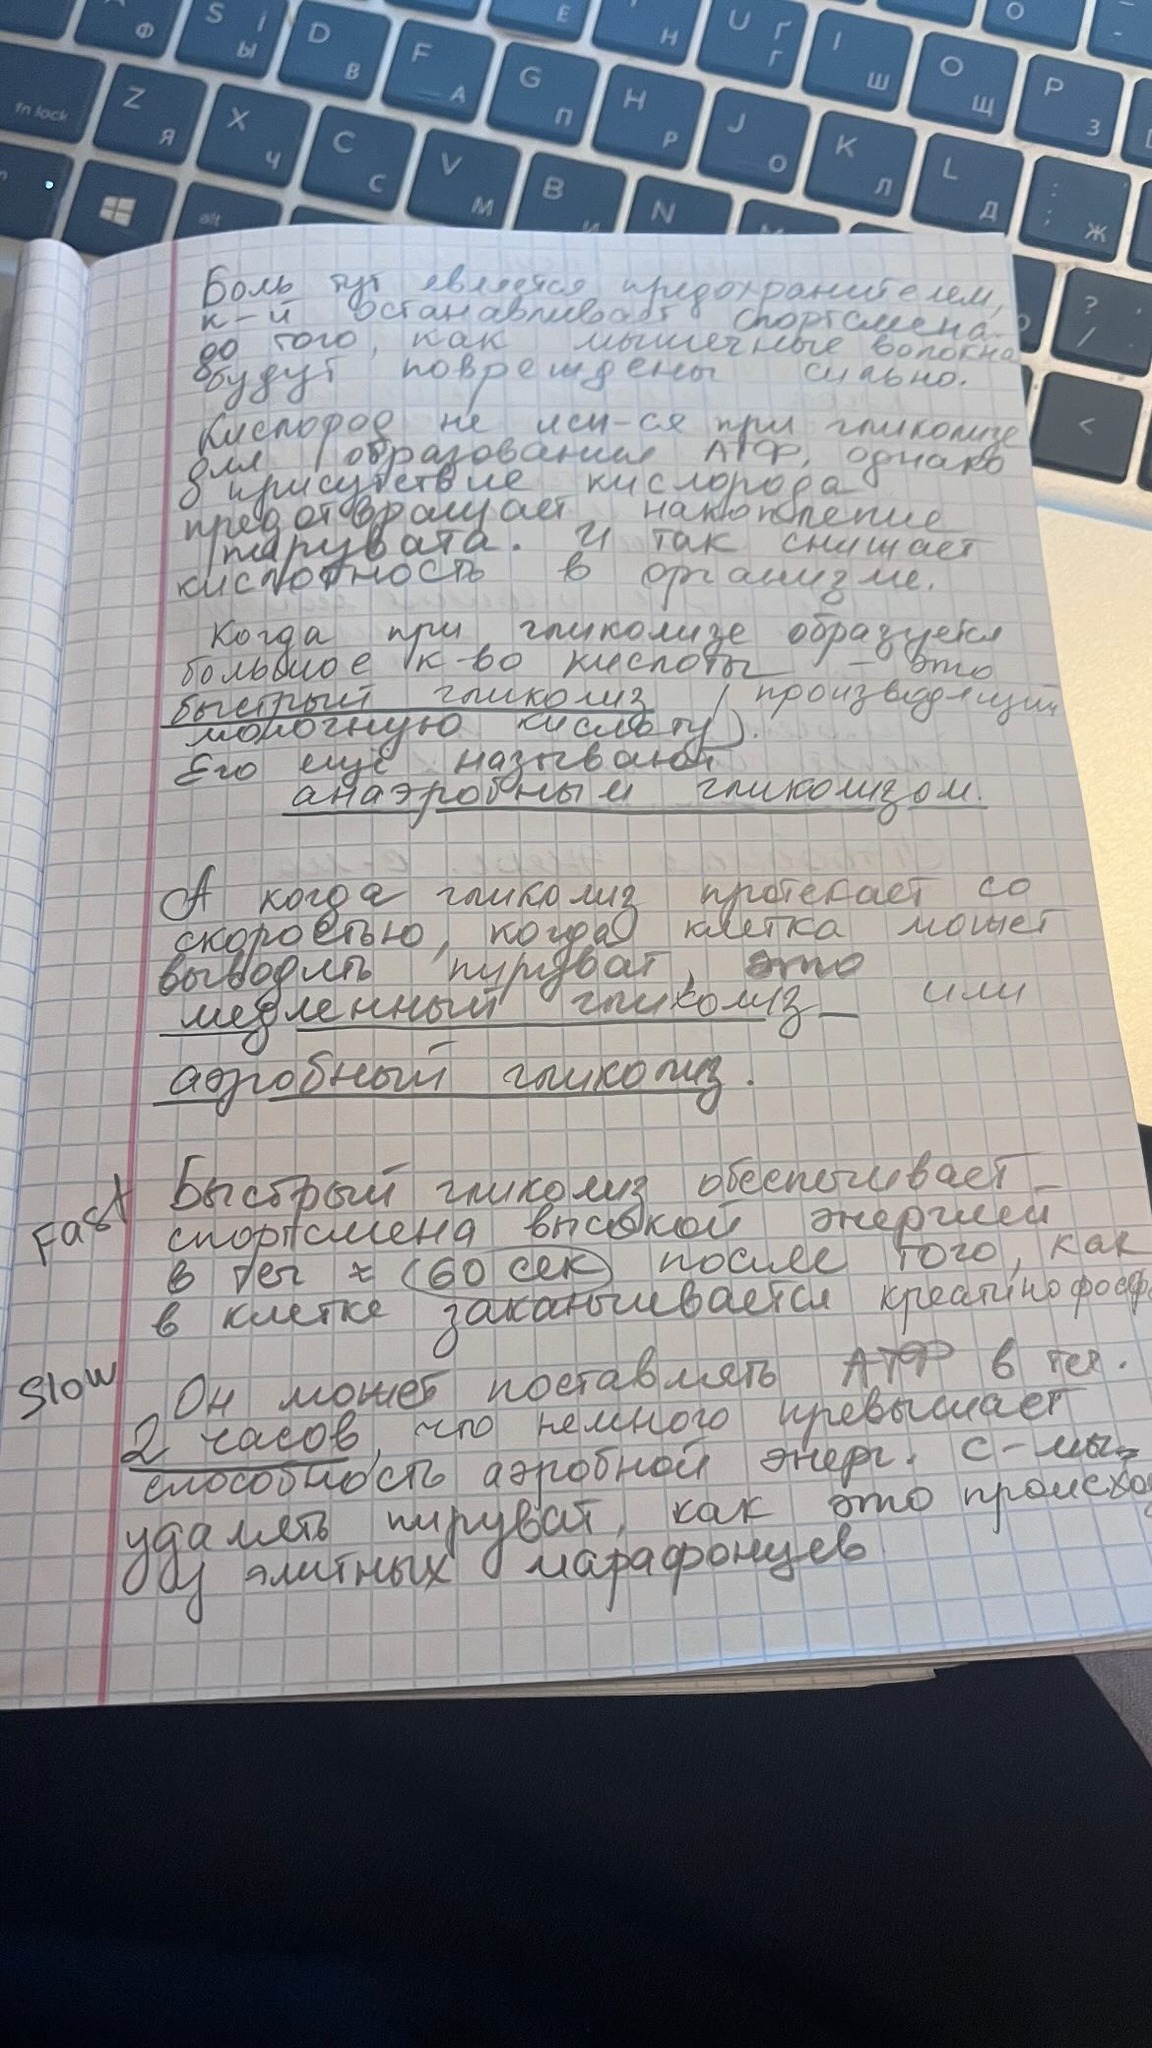 S І Ы
Ф
D В
F А
G П
Е
H Р
Н
U Ґ Г
I Ш
O Щ
P З
О
fn lock
Z Я
X Ч
C С
V М
B И
N
J О
K Л
L Д
: ; Ж
alt
? /
<
Боль тут является предохранителем,
к-й останавливает спортсмена
до того, как мышечные волокна
будут повреждены сильно.
Кислород не исп-ся при гликолизе
для образования АТФ, однако
в присутствие кислорода
предотвращает накопление
пирувата. И так снижает
кислотность в организме.
Когда при гликолизе образуется
большое к-во кислоты – это
быстрый гликолиз (производящий
молочную кислоту).
Его ещё называют
анаэробным гликолизом.
А когда гликолиз протекает со
скоростью, когда клетка может
выводить пируват, это
медленный гликолиз или
аэробный гликолиз.
Fast Быстрый гликолиз обеспечивает
спортсмена высокой энергией
в теч ≈ (60 сек) после того, как
в клетке заканчивается креатинфосф.
Slow Он может поставлять АТФ в теч.
2 часов, что немного превышает
способность аэробной энерг. с-мы
удалять пируват, как это происхо
у элитных марафонцев